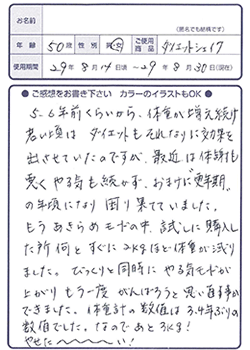 お名前
(匿名でも結構です)
年齢 50歳 性別 男・女 ご使用商品 ダイエットシェイク
使用期間 29年8月14日頃 ~ 29年8月30日(現在)
●ご感想をお書き下さい カラーのイラストもOK●
5-6年前くらいから、体重が増え続け
若い頃は ダイエットもそれなりに効果を
出させていたのですが、最近は体調も
悪く やる気も続かず、おまけに"更年期"
の年頃になり 困り果てていました。
もう あきらめモードの中、試しに購入し
た所 何と すぐに 2kgほど体重が減り
ました。びっくりと同時に やる気モードが
上がり もう一度 がんばろうと思い直す事が
できました。体重計の数値は 3.4年ぶりの
数値でした。なので あと3kg!
やせた〜〜〜い!